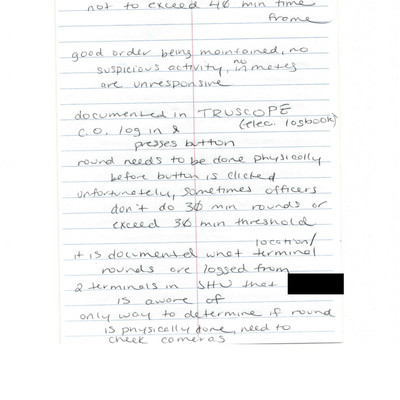 not to exceed 40 min time
frame
good order being maintained, no
suspicious activity, no inmates
are unresponsive
documented in TRUSCOPE
(elec. logbook)
C.O. log in &
presses button
round needs to be done physically
before button is clicked
unfortunately, sometimes officers
don't do 30 min rounds or
exceed 30 min threshold
location/
it is documented what terminal
rounds are logged from
2 terminals in SHU that
is aware of
only way to determine if round
is physically done, need to
check cameras